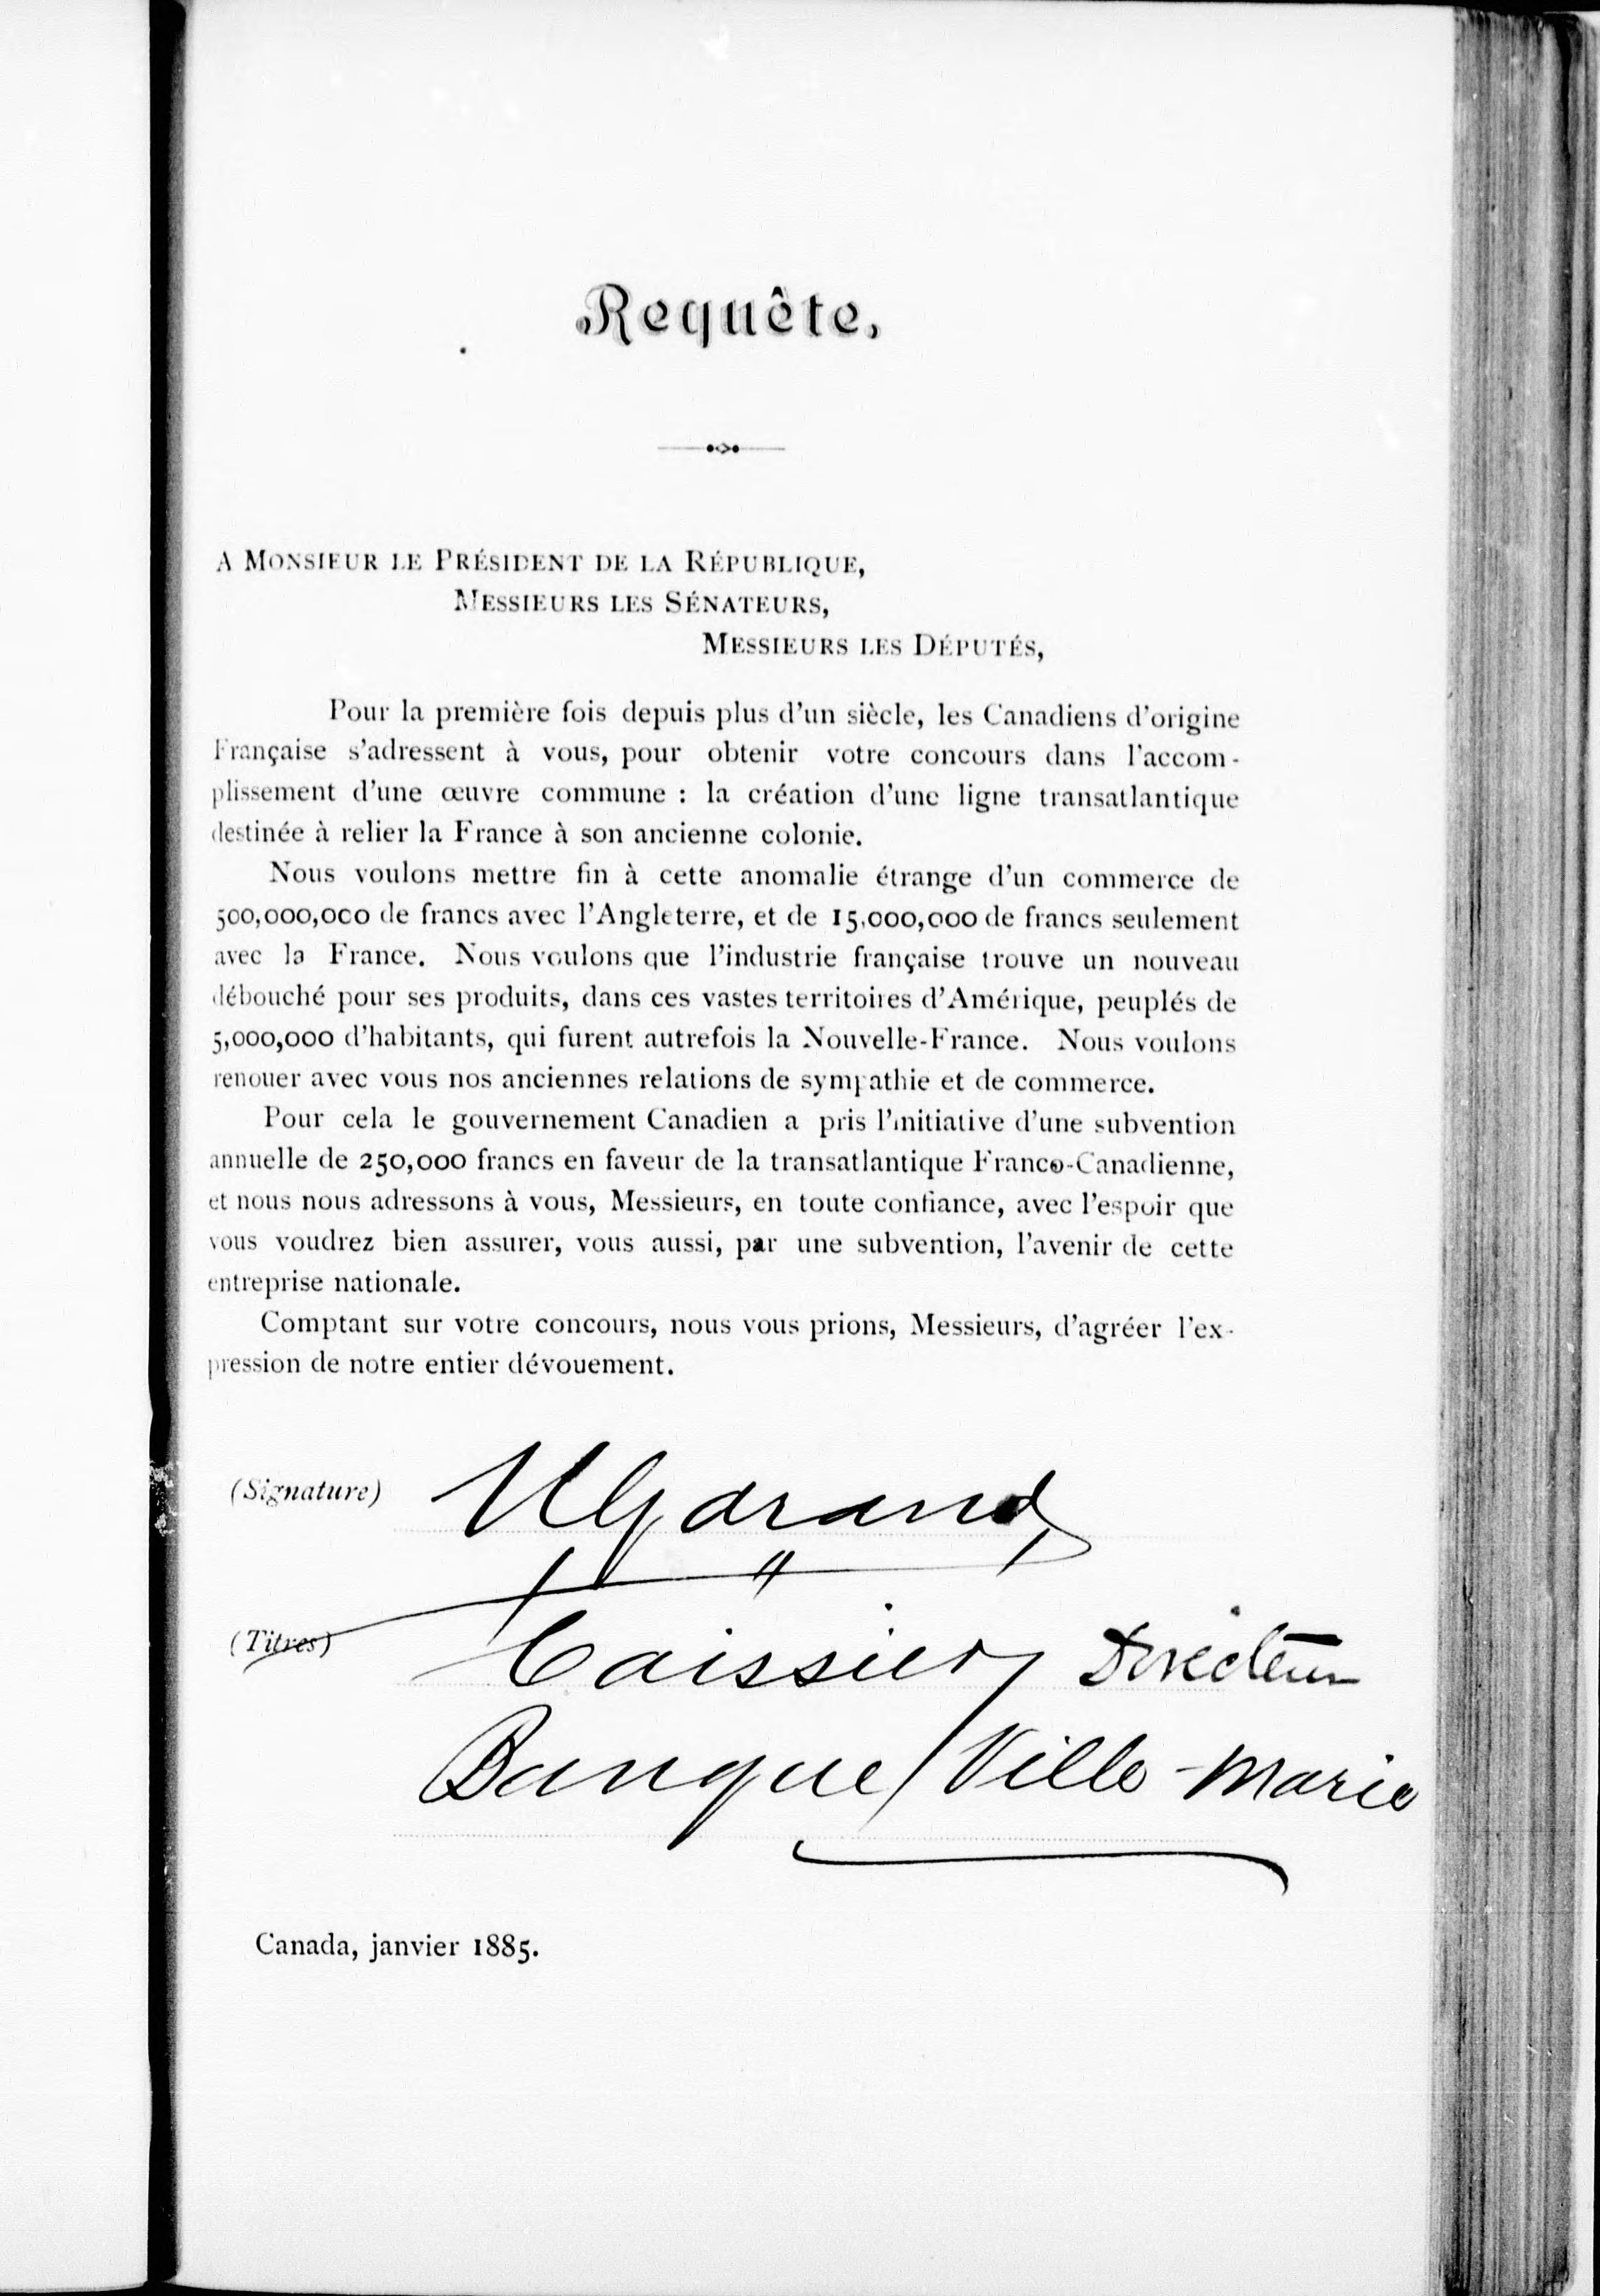 Requête.
A Monsieur le Président de la République,
Messieurs les Sénateurs,
Messieurs les Députés,
Pour la première fois depuis plus d'un siècle, les Canadiens d'origine
Française s'adressent à vous, pour obtenir votre concours dans l'accom-
plissement d'une œuvre commune : la création d'une ligne transatlantique
destinée à relier la France à son ancienne colonie.
Nous voulons mettre fin à cette anomalie étrange d'un commerce de
500,000,000 de francs avec l'Angleterre, et de 15,000,000 de francs seulement
avec la France. Nous voulons que l'industrie française trouve un nouveau
débouché pour ses produits, dans ces vastes territoires d'Amérique, peuplés de
5,000,000 d'habitants, qui furent autrefois la Nouvelle-France. Nous voulons
renouer avec vous nos anciennes relations de sympathie et de commerce.
Pour cela le gouvernement Canadien a pris l'initiative d'une subvention
annuelle de 250,000 francs en faveur de la transatlantique Franco-Canadienne,
et nous nous adressons à vous, Messieurs, en toute confiance, avec l'espoir que
vous voudrez bien assurer, vous aussi, par une subvention, l'avenir de cette
entreprise nationale.
Comptant sur votre concours, nous vous prions, Messieurs, d'agréer l'ex-
pression de notre entier dévouement.
(Signature) U Garand
(Titres) Caissier Directeur
Banque Ville-Marie
Canada, janvier 1885.